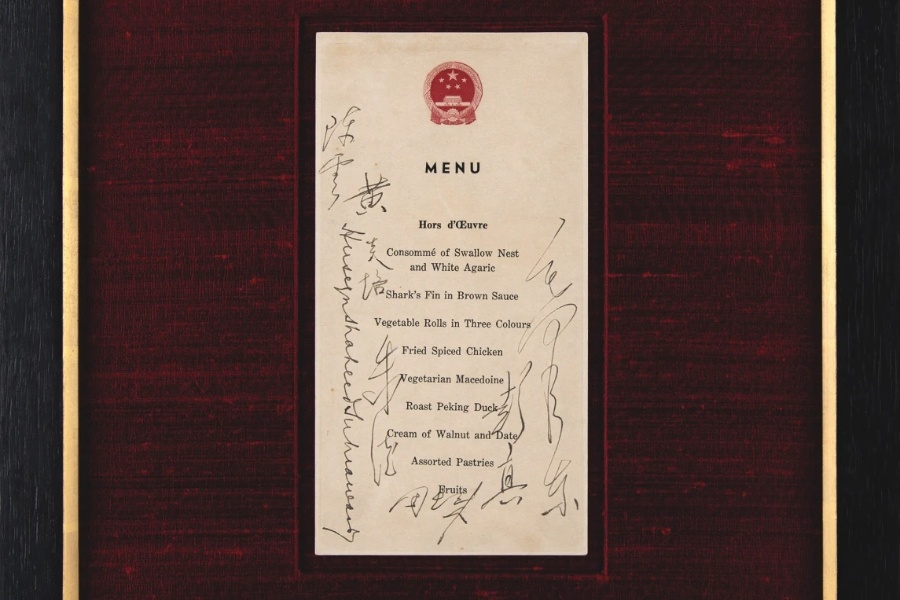 MENU
Hors d'Œuvre
Consommé of Swallow Nest
and White Agaric
Shark's Fin in Brown Sauce
Vegetable Rolls in Three Colours
Fried Spiced Chicken
Vegetarian Macedoine
Roast Peking Duck
Cream of Walnut and Date
Assorted Pastries
Fruits
黄
Huseyn Shaheed Suhrawardy